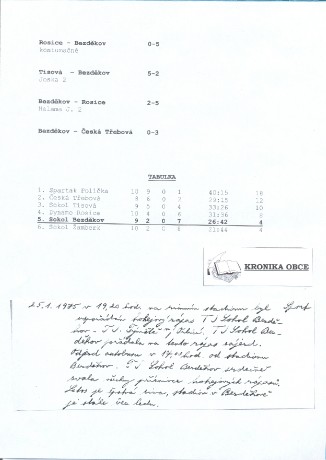 Rosice - Bezděkov 0-5
Tisová - Bezděkov 5-2
Bezděkov - Rosice 2-5
Málek C. 2
Bezděkov - Česká Třebová 0-3
TABULKA
1. Spartak Polička 10 9 0 1 40:15 18
2. Česká Třebová 8 6 0 2 29:15 12
3. Sokol Tisová 9 5 0 4 33:26 10
4. Dynamo Rosice 10 4 0 6 31:36 8
5. Sokol Bezděkov 9 2 0 7 26:42 4
6. Sokol Žamberk 10 2 0 8 4
KRONIKA OBCE
25.1. 1975 v 19,20 hod. na zimním stadionu byl Sport
hokejový zápas TJ Sokol Bezdě-
kov - TJ. TJ Sokol Bez-
děkov pořádala na tento zápas zájezd.
Odjezd autobusu v 17,00 hod. od stadionu
Bezděkov. TJ Sokol Bezděkov srdečně
zvala všechny příznivce hokejových zápasů.
Letos je špatná zima, stadion v Bezděkově
je stále bez ledu.